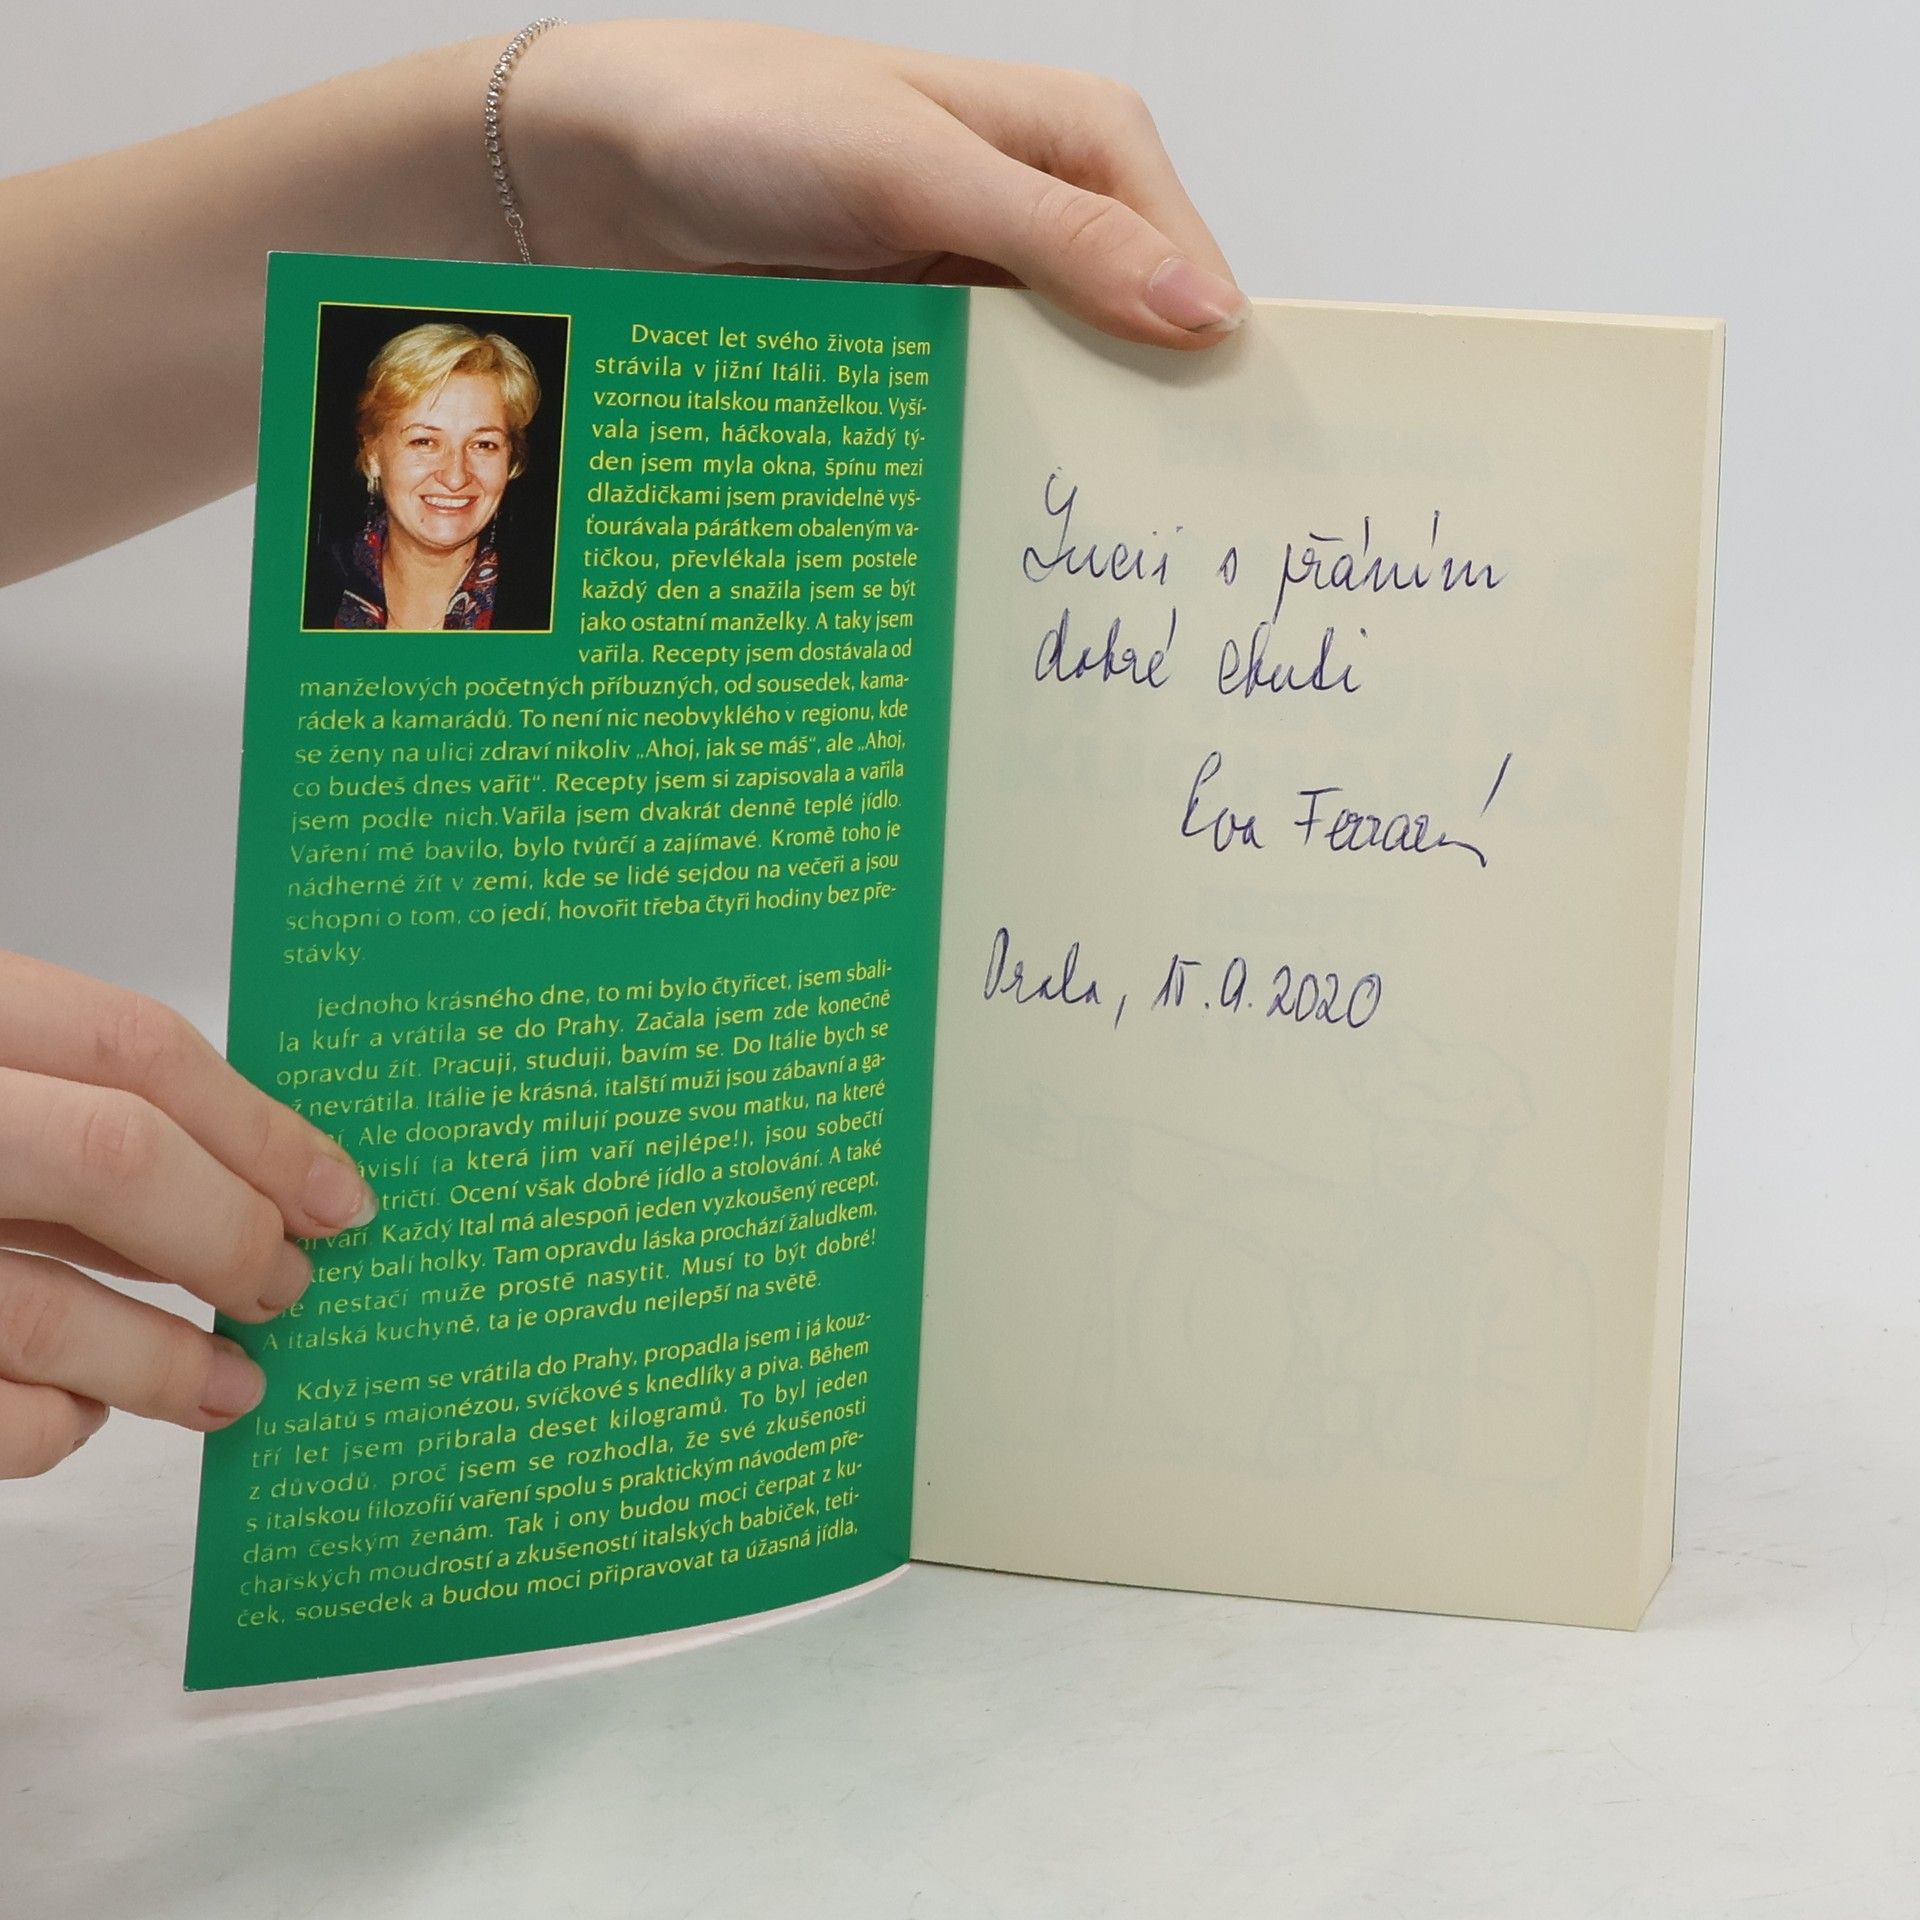 Dvacet let svého života jsem
strávila v jižní Itálii. Byla jsem
vzornou italskou manželkou. Vyší-
vala jsem, háčkovala, každý tý-
den jsem myla okna, špínu mezi
dlaždičkami jsem pravidelně vyš-
ťourávala párátkem obaleným va-
tičkou, převlékala jsem postele
každý den a snažila jsem se být
jako ostatní manželky. A taky jsem
vařila. Recepty jsem dostávala od
manželových početných příbuzných, od sousedek, kama-
rádek a kamarádů. To není nic neobvyklého v regionu, kde
se ženy na ulici zdraví nikoliv „Ahoj, jak se máš“, ale „Ahoj,
co budeš dnes vařit“. Recepty jsem si zapisovala a vařila
jsem podle nich.Vařila jsem dvakrát denně teplé jídlo.
Vaření mě bavilo, bylo tvůrčí a zajímavé. Kromě toho je
nádherné žít v zemi, kde se lidé sejdou na večeři a jsou
schopni o tom, co jedí, hovořit třeba čtyři hodiny bez pře-
stávky.
Jednoho krásného dne, to mi bylo čtyřicet, jsem sbali-
la kufr a vrátila se do Prahy. Začala jsem zde konečně
opravdu žít. Pracuji, studuji, bavím se. Do Itálie bych se
ž nevrátila. Itálie je krásná, italští muži jsou zábavní a ga-
Ale doopravdy milují pouze svou matku, na které
ávislí (a která jim vaří nejlépe!), jsou sobečtí
tričtí. Ocení však dobré jídlo a stolování. A také
vaří. Každý Ital má alespoň jeden vyzkoušený recept,
který balí holky. Tam opravdu láska prochází žaludkem,
nestačí muže prostě nasytit. Musí to být dobré!
A italská kuchyně, ta je opravdu nejlepší na světě.
Když jsem se vrátila do Prahy, propadla jsem i já kouz-
lu salátů s majonézou, svíčkové s knedlíky a piva. Během
tří let jsem přibrala deset kilogramů. To byl jeden
z důvodů, proč jsem se rozhodla, že své zkušenosti
s italskou filozofií vaření spolu s praktickým návodem pře-
dám českým ženám. Tak i ony budou moci čerpat z ku-
chařských moudrostí a zkušeností italských babiček, teti-
ček, sousedek a budou moci připravovat ta úžasná jídla,
Lucii s přáním
dobré chuti
Eva Ferrarová
Praha, 15.9.2020